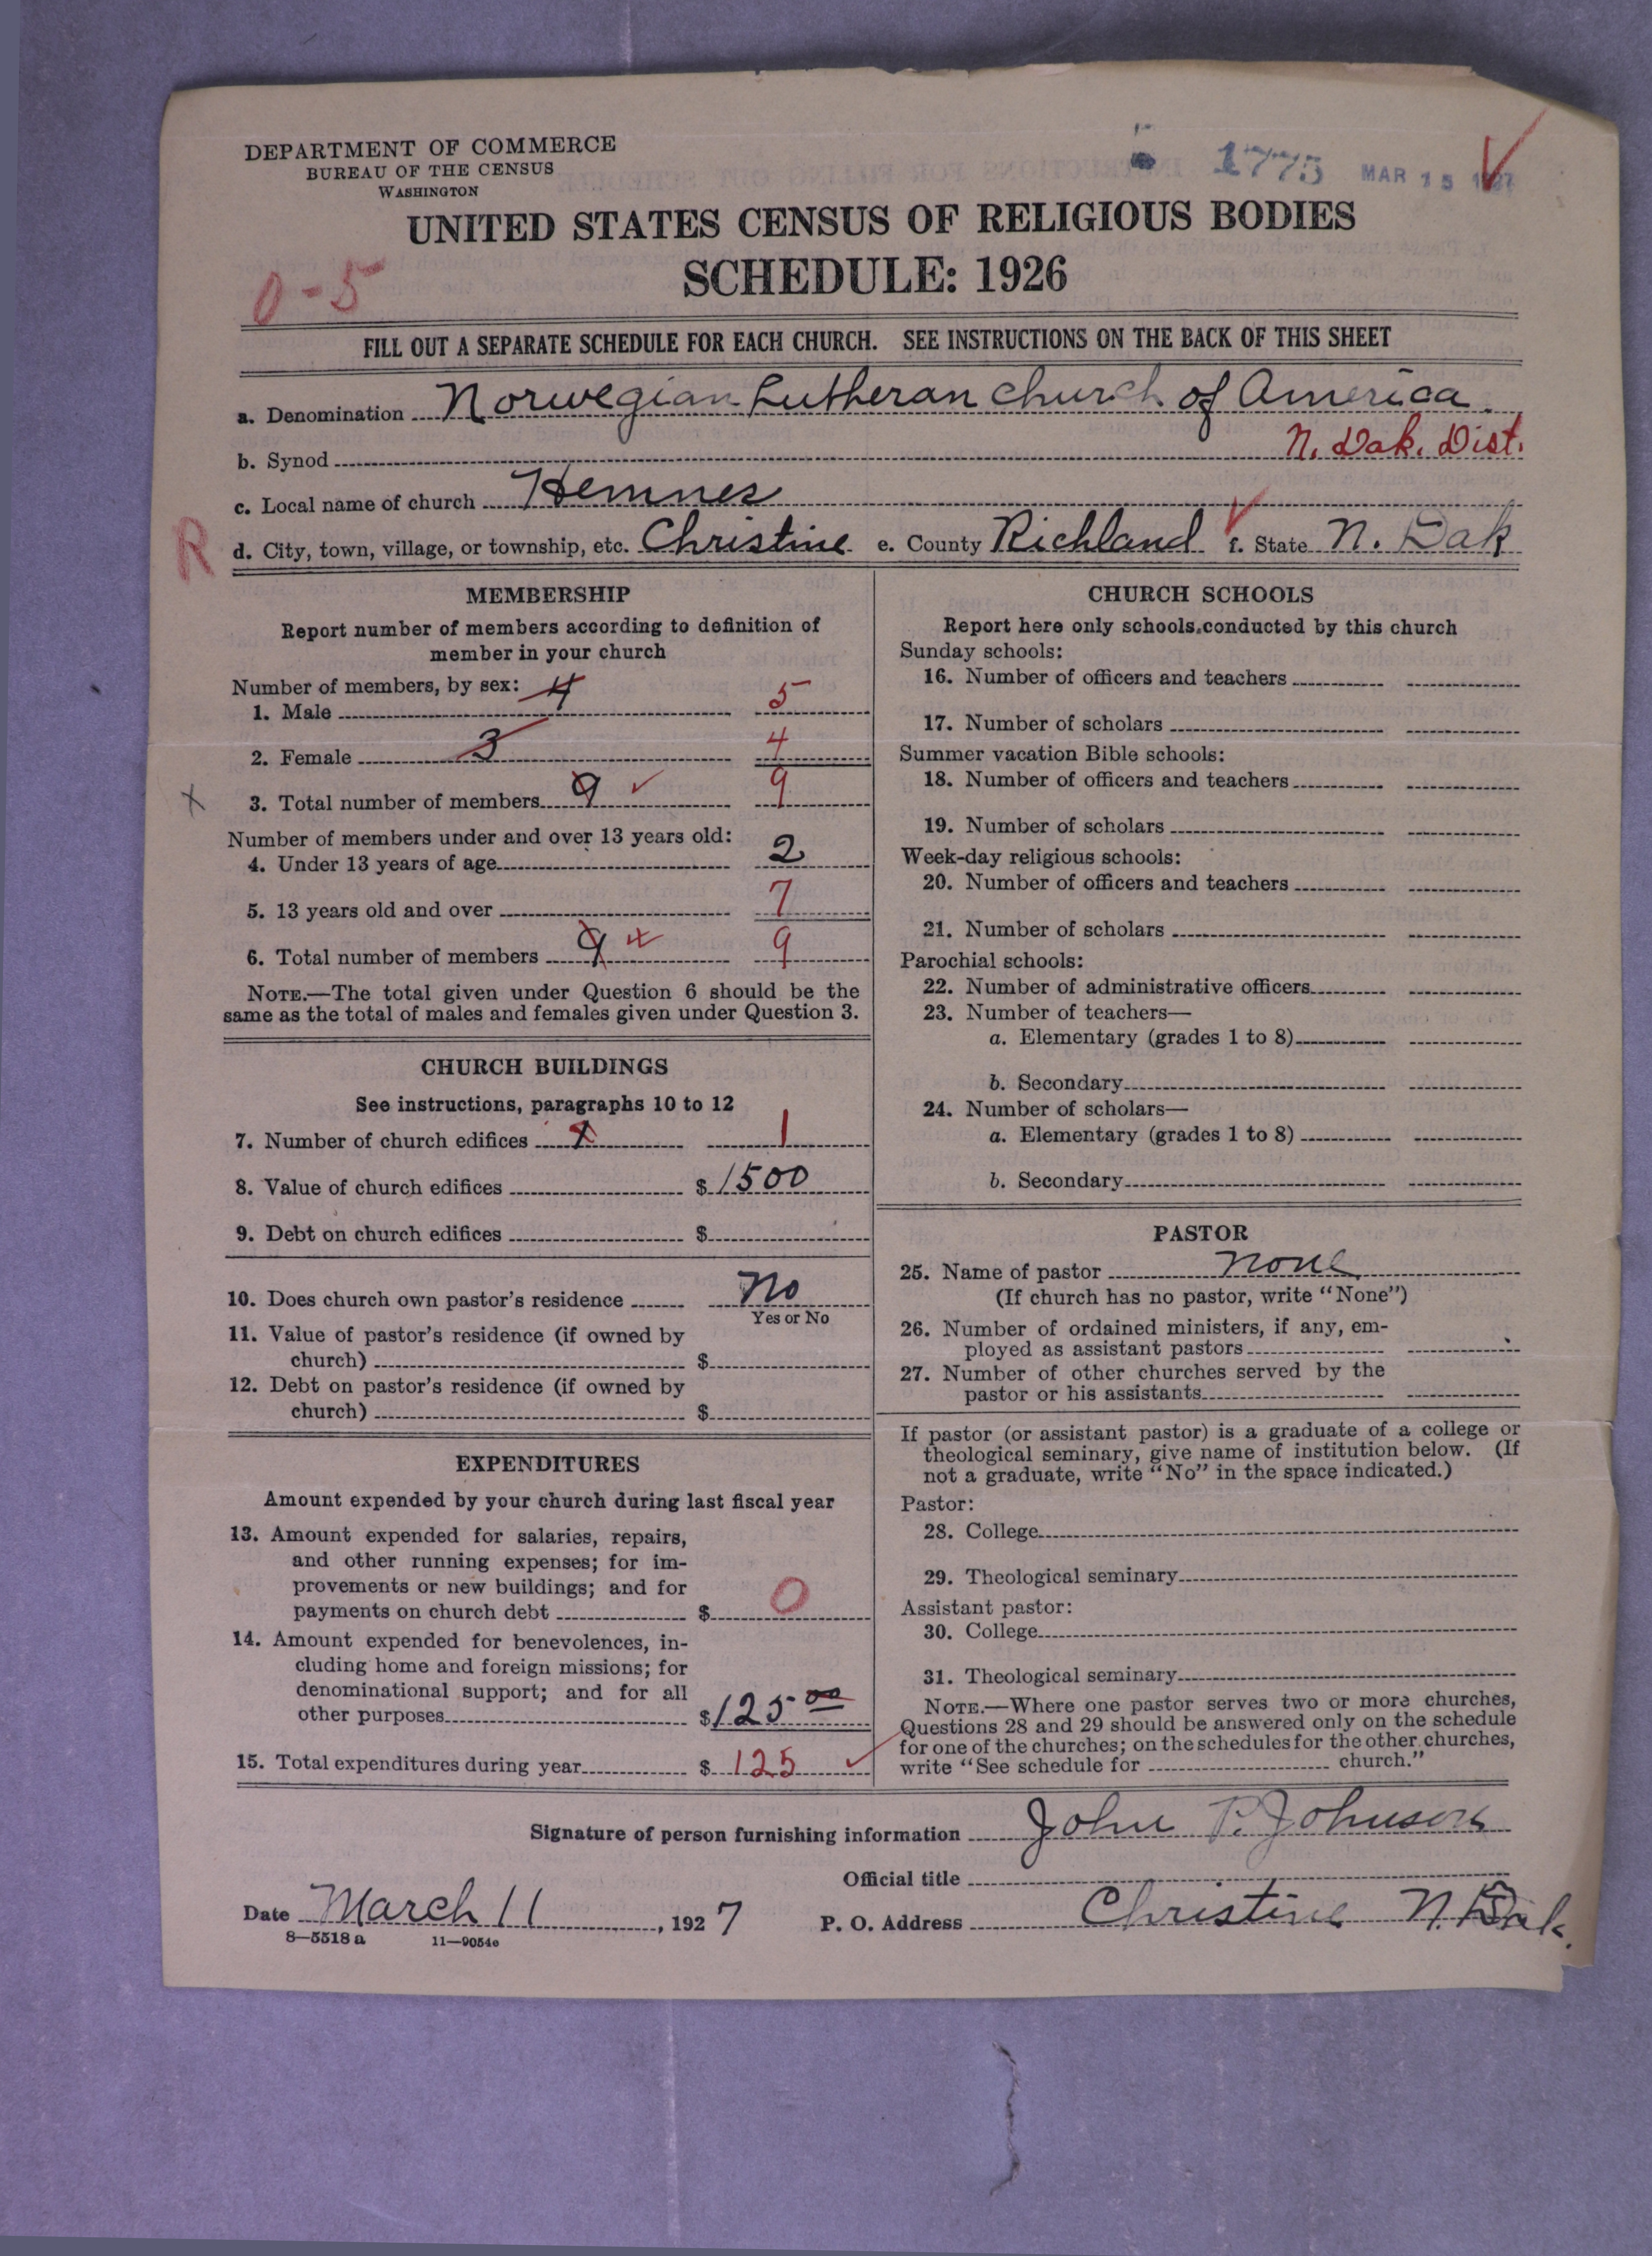 DEPARTMENT OF COMMERCE
BUREAU OF THE CENSUS
WASHINGTON
1775 MAR 15 1927
UNITED STATES CENSUS OF RELIGIOUS BODIES
SCHEDULE: 1926
0-5
FILL OUT A SEPARATE SCHEDULE FOR EACH CHURCH. SEE INSTRUCTIONS ON THE BACK OF THIS SHEET
a. Denomination Norwegian Lutheran church of America.
b. Synod N. Dak. Dist.
c. Local name of church Hemnes
R d. City, town, village, or township, etc. Christine e. County Richland f. State N. Dak
MEMBERSHIP
Report number of members according to definition of
member in your church
Number of members, by sex: 4
1. Male 5
2. Female 3 4
3. Total number of members 9 9
Number of members under and over 13 years old:
4. Under 13 years of age 2
5. 13 years old and over 7
6. Total number of members 9 9
NOTE.—The total given under Question 6 should be the
same as the total of males and females given under Question 3.
CHURCH BUILDINGS
See instructions, paragraphs 10 to 12
7. Number of church edifices 1 1
8. Value of church edifices $ 1500
9. Debt on church edifices $
10. Does church own pastor's residence No
Yes or No
11. Value of pastor's residence (if owned by
church) $
12. Debt on pastor's residence (if owned by
church) $
EXPENDITURES
Amount expended by your church during last fiscal year
13. Amount expended for salaries, repairs,
and other running expenses; for im-
provements or new buildings; and for
payments on church debt $ 0
14. Amount expended for benevolences, in-
cluding home and foreign missions; for
denominational support; and for all
other purposes $ 125 00
15. Total expenditures during year $ 125
CHURCH SCHOOLS
Report here only schools conducted by this church
Sunday schools:
16. Number of officers and teachers
17. Number of scholars
Summer vacation Bible schools:
18. Number of officers and teachers
19. Number of scholars
Week-day religious schools:
20. Number of officers and teachers
21. Number of scholars
Parochial schools:
22. Number of administrative officers
23. Number of teachers—
a. Elementary (grades 1 to 8)
b. Secondary
24. Number of scholars—
a. Elementary (grades 1 to 8)
b. Secondary
PASTOR
25. Name of pastor None
(If church has no pastor, write "None")
26. Number of ordained ministers, if any, em-
ployed as assistant pastors
27. Number of other churches served by the
pastor or his assistants
If pastor (or assistant pastor) is a graduate of a college or
theological seminary, give name of institution below. (If
not a graduate, write "No" in the space indicated.)
Pastor:
28. College
29. Theological seminary
Assistant pastor:
30. College
31. Theological seminary
NOTE.—Where one pastor serves two or more churches,
Questions 28 and 29 should be answered only on the schedule
for one of the churches; on the schedules for the other churches,
write "See schedule for church."
Signature of person furnishing information John P. Johnson
Official title
Date March 11, 1927 P. O. Address Christine N. Dak.
8—5518 a 11—9054e